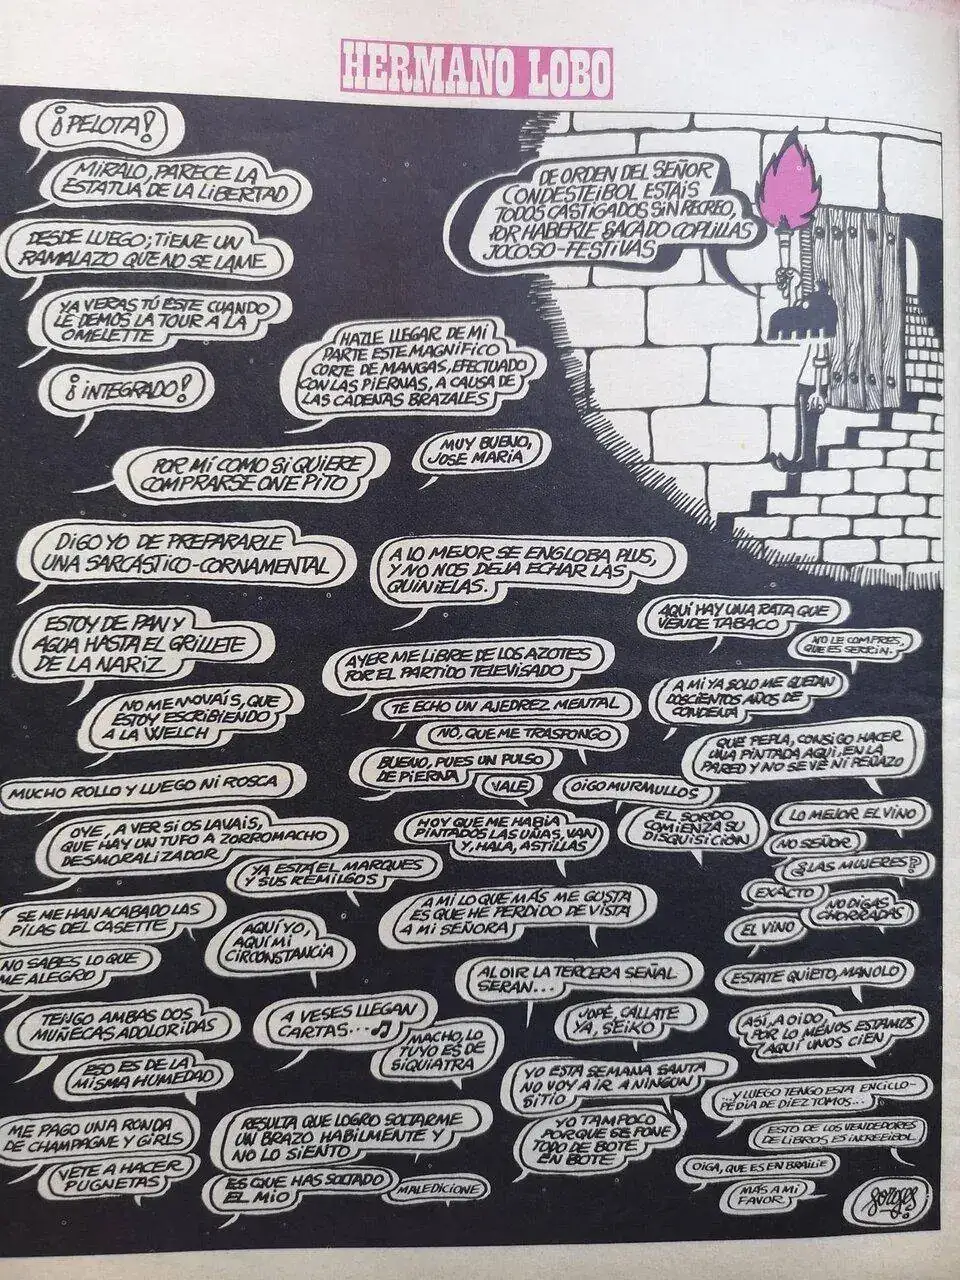 HERMANO LOBO
¡PELOTA!
MIRALO, PARECE LA
ESTATUA DE LA LIBERTAD
DESDE LUEGO; TIENE UN
RAMALAZO QUE NO SE LAME
YA VERAS TÚ ESTE CUANDO
LE DEMOS LA TOUR A LA
OMELETTE
¡INTEGRADO!
DE ORDEN DEL SEÑOR
CONDESTEIBOL ESTAIS
TODOS CASTIGADOS SIN RECREO,
POR HABERLE SACADO COPLILLAS
JOCOSO-FESTIVAS
HAZLE LLEGAR DE MI
PARTE ESTE MAGNIFICO
CORTE DE MANGAS, EFECTUADO
CON LAS PIERNAS, A CAUSA DE
LAS CADENAS BRAZALES
MUY BUENO,
JOSE MARIA
POR MÍ COMO SI QUIERE
COMPRARSE ONE PITO
DIGO YO DE PREPARARLE
UNA SARCASTICO-CORNAMENTAL
A LO MEJOR SE ENGLOBA PLUS,
Y NO NOS DEJA ECHAR LAS
QUINIELAS.
ESTOY DE PAN Y
AGUA HASTA EL GRILLETE
DE LA NARIZ
AQUÍ HAY UNA RATA QUE
VENDE TABACO
NO LE COMPRES,
QUE ES SERRIN.
AYER ME LIBRE DE LOS AZOTES
POR EL PARTIDO TELEVISADO
A MI YA SOLO ME QUEDAN
DOSCIENTOS AÑOS DE
CONDENA
NO ME MOVAIS, QUE
ESTOY ESCRIBIENDO
A LA WELCH
TE ECHO UN AJEDREZ MENTAL
NO, QUE ME TRASPONGO
BUENO, PUES UN PULSO
DE PIERNA
VALE
QUE PEPLA, CONSIGO HACER
UNA PINTADA AQUI, EN LA
PARED Y NO SE VE NI PEÑAZO
MUCHO ROLLO Y LUEGO NI ROSCA
OIGO MURMULLOS
EL SORDO
COMIENZA SU
DISQUISICIÓN
LO MEJOR EL VINO
NO SEÑOR
¿LAS MUJERES?
EXACTO
NO DIGAS
CHORRADAS
EL VINO
OYE, A VER SI OS LAVAIS,
QUE HAY UN TUFO A ZORROMACHO
DESMORALIZADOR
YA ESTÁ EL MARQUES
Y SUS REMILGOS
HOY QUE ME HABÍA
PINTADO LAS UÑAS, VAN
Y, HALA, ASTILLAS
SE ME HAN ACABADO LAS
PILAS DEL CASETTE
NO SABES LO QUE
ME ALEGRO
AQUÍ YO,
AQUÍ MI
CIRCONSTANCIA
A MI LO QUE MÁS ME GUSTA
ES QUE HE PERDIDO DE VISTA
A MI SEÑORA
AL OIR LA TERCERA SEÑAL
SERAN...
JOPÉ, CALLATE
YA, SEIKO
ESTATE QUIETO, MANOLO
ASÍ, A OIDO,
POR LO MENOS ESTAMOS
AQUÍ UNOS CIEN
TENGO AMBAS DOS
MUÑECAS ADOLORIDAS
ESO ES DE LA
MISMA HUMEDAD
A VESES LLEGAN
CARTAS...
MACHO, LO
TUYO ES DE
SIQUIATRA
YO ESTA SEMANA SANTA
NO VOY A IR A NINGUN
SITIO
YO TAMPOCO
PORQUE SE PONE
TODO DE BOTE
EN BOTE
...Y LUEGO TENGO ESTA ENCICLO-
PEDIA DE DIEZ TOMOS...
ESTO DE LOS VENDEDORES
DE LIBROS ES INCREEIBOL
OIGA, QUE ES EN BRAILLE
MÁS A MI
FAVOR
ME PAGO UNA RONDA
DE CHAMPAGNE Y GIRLS
VETE A HACER
PUGNETAS
RESULTA QUE LOGRO SOLTARME
UN BRAZO HABILMENTE Y
NO LO SIENTO
ES QUE HAS SOLTADO
EL MIO
MALEDICIONE
forges